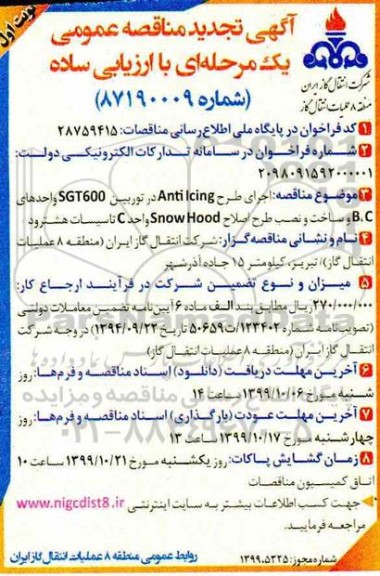 نوبت اول
آگهی تجدید مناقصه عمومی
یک مرحله‌ای با ارزیابی ساده
(شماره ۸۷۱۹۰۰۰۹)
شرکت انتقال گاز ایران
منطقه ۸ عملیات انتقال گاز
۱ کد فراخوان در پایگاه ملی اطلاع رسانی مناقصات: ۲۸۷۵۹۴۱۵
۲ شماره فراخوان در سامانه تدارکات الکترونیکی دولت:
۲۰۹۸۰۹۱۵۹۲۰۰۰۰۰۱
۳ موضوع مناقصه: اجرای طرح Anti Icing در توربین SGT600 واحدهای
B،C و ساخت و نصب طرح اصلاح Snow Hood واحد C تاسیسات هشترود
۴ نام و نشانی مناقصه گزار: شرکت انتقال گاز ایران (منطقه ۸ عملیات
انتقال گاز)/ تبریز، کیلومتر ۱۵ جاده آذرشهر
۵ میزان و نوع تضمین شرکت در فرآیند ارجاع کار:
۲۷۰/۰۰۰/۰۰۰ ریال مطابق بند الف ماده ۶ آیین نامه تضمین معاملات دولتی
(تصویب‌نامه شماره ۱۲۳۴۰۲/ت۵۰۶۵۹ تاریخ ۱۳۹۴/۰۹/۲۲) در وجه شرکت
انتقال گاز ایران (منطقه ۸ عملیات انتقال گاز)
۶ آخرین مهلت دریافت (دانلود) اسناد مناقصه و فرم‌ها: روز
شنبه مورخ ۱۳۹۹/۱۰/۰۶ ساعت ۱۴
۷ آخرین مهلت عودت (بارگذاری) اسناد مناقصه و فرم‌ها: روز
چهارشنبه مورخ ۱۳۹۹/۱۰/۱۷ ساعت ۱۳
۸ زمان گشایش پاکات: روز یکشنبه مورخ ۱۳۹۹/۱۰/۲۱ ساعت ۱۰
اتاق کمیسیون مناقصات
جهت کسب اطلاعات بیشتر به سایت اینترنتی www.nigcdist8.ir
مراجعه فرمایید.
شماره مجوز: ۱۳۹۹.۵۳۲۵
روابط عمومی منطقه ۸ عملیات انتقال گاز ایران